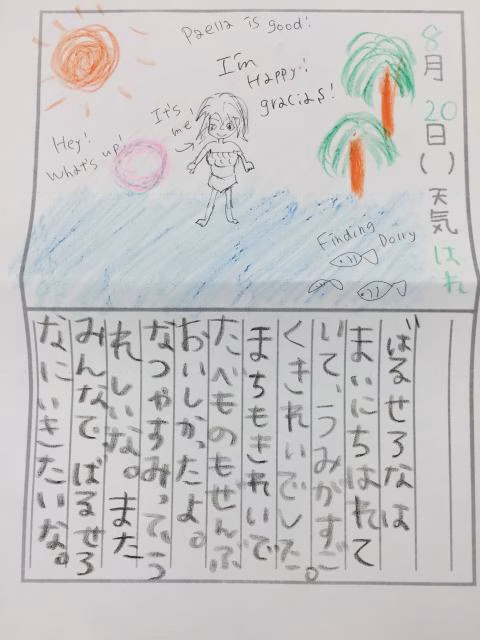 Paella is good!
I'm
Happy!
gracias!
It's
me!
Hey!
What's up!
Finding
Dorry
8月20日( )天気はれ
ばるせろなは
まいにちはれて
いて、うみがすご
くきれいでした。
まちもきれいで
たべものもぜんぶ
おいしかったよ。
なつやすみって、う
れしいな。また
みんなでばるせろ
なにいきたいな。